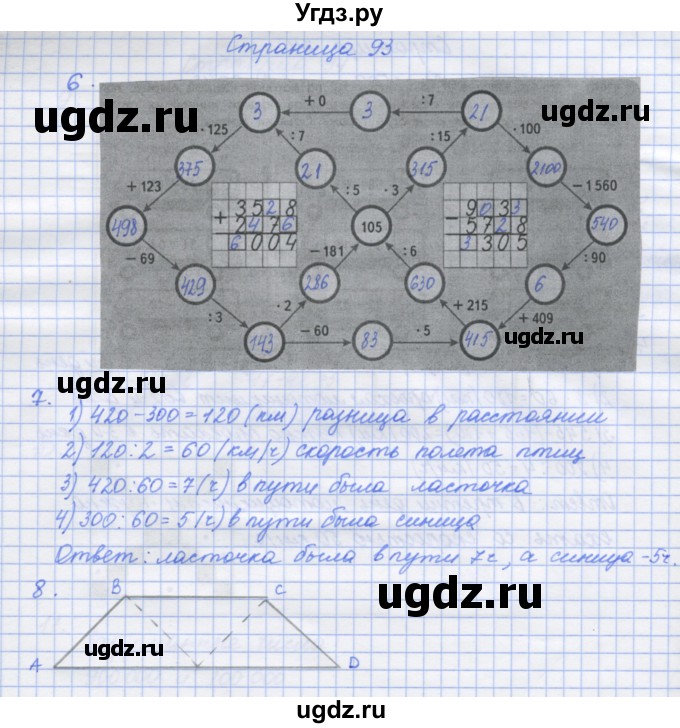 Угдз.ру
Страница 93
6.
3 + 0 3 : 7 21
· 125 : 7 : 15 · 100
375 21 315 2100
+ 123 : 5 · 3 − 1 560
3528
+ 2476
6004
9033
− 5728
3305
498 105 540
− 69 − 181 : 6 : 90
429 286 630 6
: 3 · 2 + 215 + 409
143 − 60 83 · 5 415
7.
1) 420 - 300 = 120 (км) разница в расстоянии
2) 120 : 2 = 60 (км/ч) скорость полета птиц
3) 420 : 60 = 7 (ч) в пути была ласточка
4) 300 : 60 = 5 (ч) в пути была синица
Ответ: ласточка была в пути 7ч, а синица -5ч.
8. B C
A D
ugdz.ru
ugdz.ru
ugdz.ru
ugdz.ru
ugdz.ru
ugdz.ru
ugdz.ru
ugdz.ru
ugdz.ru